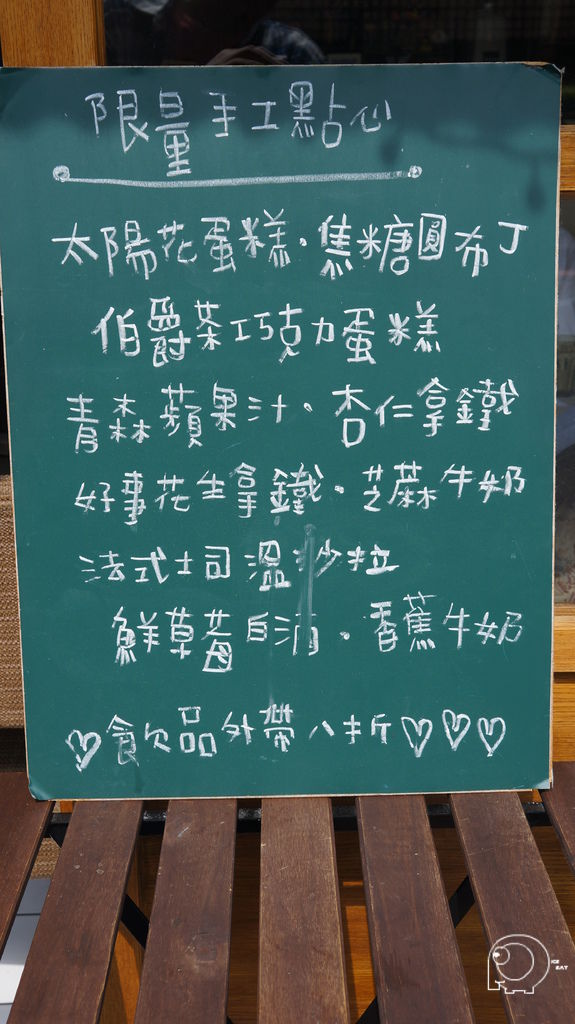 限量手工點心
太陽花蛋糕.焦糖圓布丁
伯爵茶巧克力蛋糕
青森蘋果汁.杏仁拿鐵
好事花生拿鐵.芝蔴牛奶
法式士司溫沙拉
鮮草莓自消.香蕉牛奶
♡飲品外帶八折♡♡♡
ICE
EAT